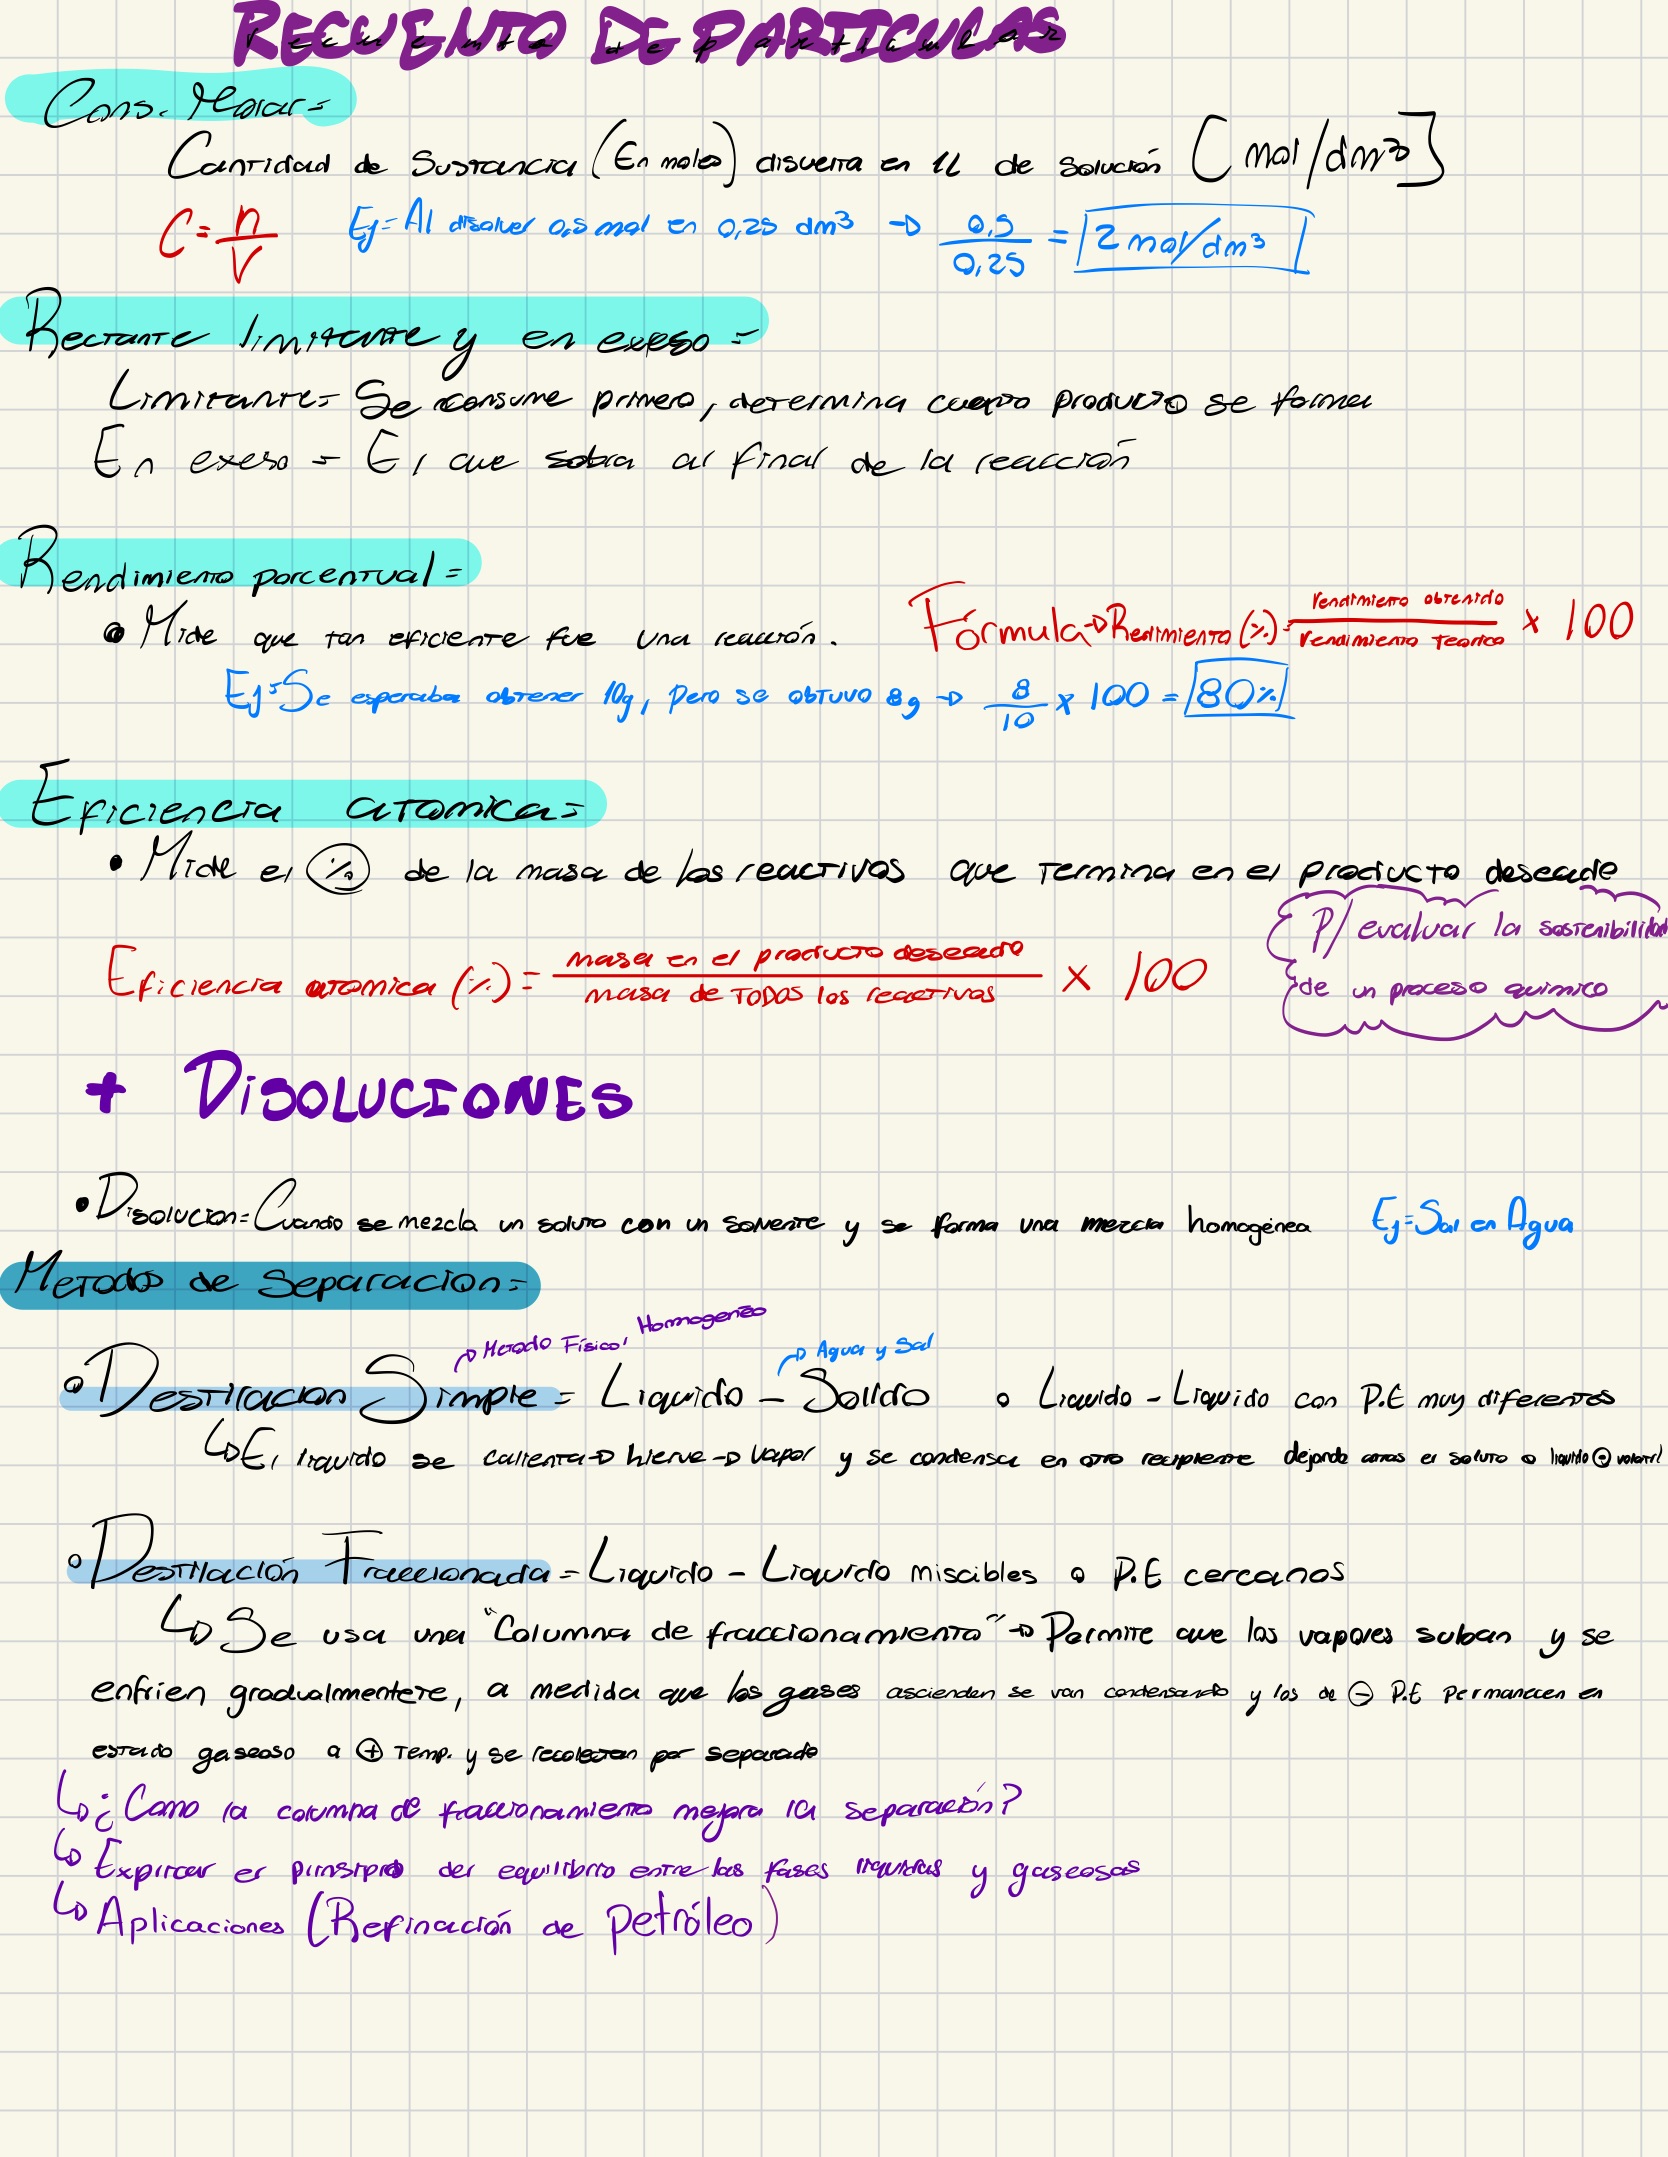 RECUENTO DE PARTICULAS
Cons. Molar=
Cantidad de Sustancia (En moles) disuelta en 1L de solución [mol/dm³]
C = n/V Ej= Al disolver 0,5 mol en 0,25 dm³ → 0,5/0,25 = 2 mol/dm³
Rectante limitante y en exeso =
Limitante= Se consume primero, determina cuanto producto se forma
En exeso = El que sobra al final de la reacción
Rendimiento porcentual =
• Mide que tan eficiente fue una reacción. Formula→Redimiento (%) = rendimiento obtenido/rendimiento teorico x 100
Ej=Se esperaba obtener 10g, pero se obtuvo 8g → 8/10 x 100 = 80%
Eficiencia atomica=
• Mide el % de la masa de los reactivos que termina en el producto deseado
P/ evaluar la sostenibilidad
Eficiencia atomica (%) = masa en el producto deseado/masa de TODOS los reactivos x 100
de un proceso quimico
+ DISOLUCIONES
• Disolucion= Cuando se mezcla un soluto con un solvente y se forma una mezcla homogénea Ej=Sal en Agua
Metodos de separacion=
→ Metodo Físico, Homogeneo → Agua y Sal
• Destilacion Simple = Liquido - Solido o Liquido - Liquido con P.E muy diferentes
↳ El liquido se calienta→ hierve → vapor y se condensa en otro recipiente dejando atras el soluto o liquido ⊖ volatil
• Destilación Fraccionada = Liquido - Liquido miscibles o P.E cercanos
↳ Se usa una "Columna de fraccionamiento" → Permite que los vapores suban y se
enfrien gradualmentete, a medida que los gases ascienden se van condensando y los de ⊖ P.E permanecen en
estado gaseoso a ⊕ Temp. y se recolectan por separado
↳ ¿Como la columna de fraccionamiento mejora la separación?
↳ Explicar el prinsipio del equilibrio entre las fases liquidas y gaseosas
↳ Aplicaciones (Refinación de petróleo)